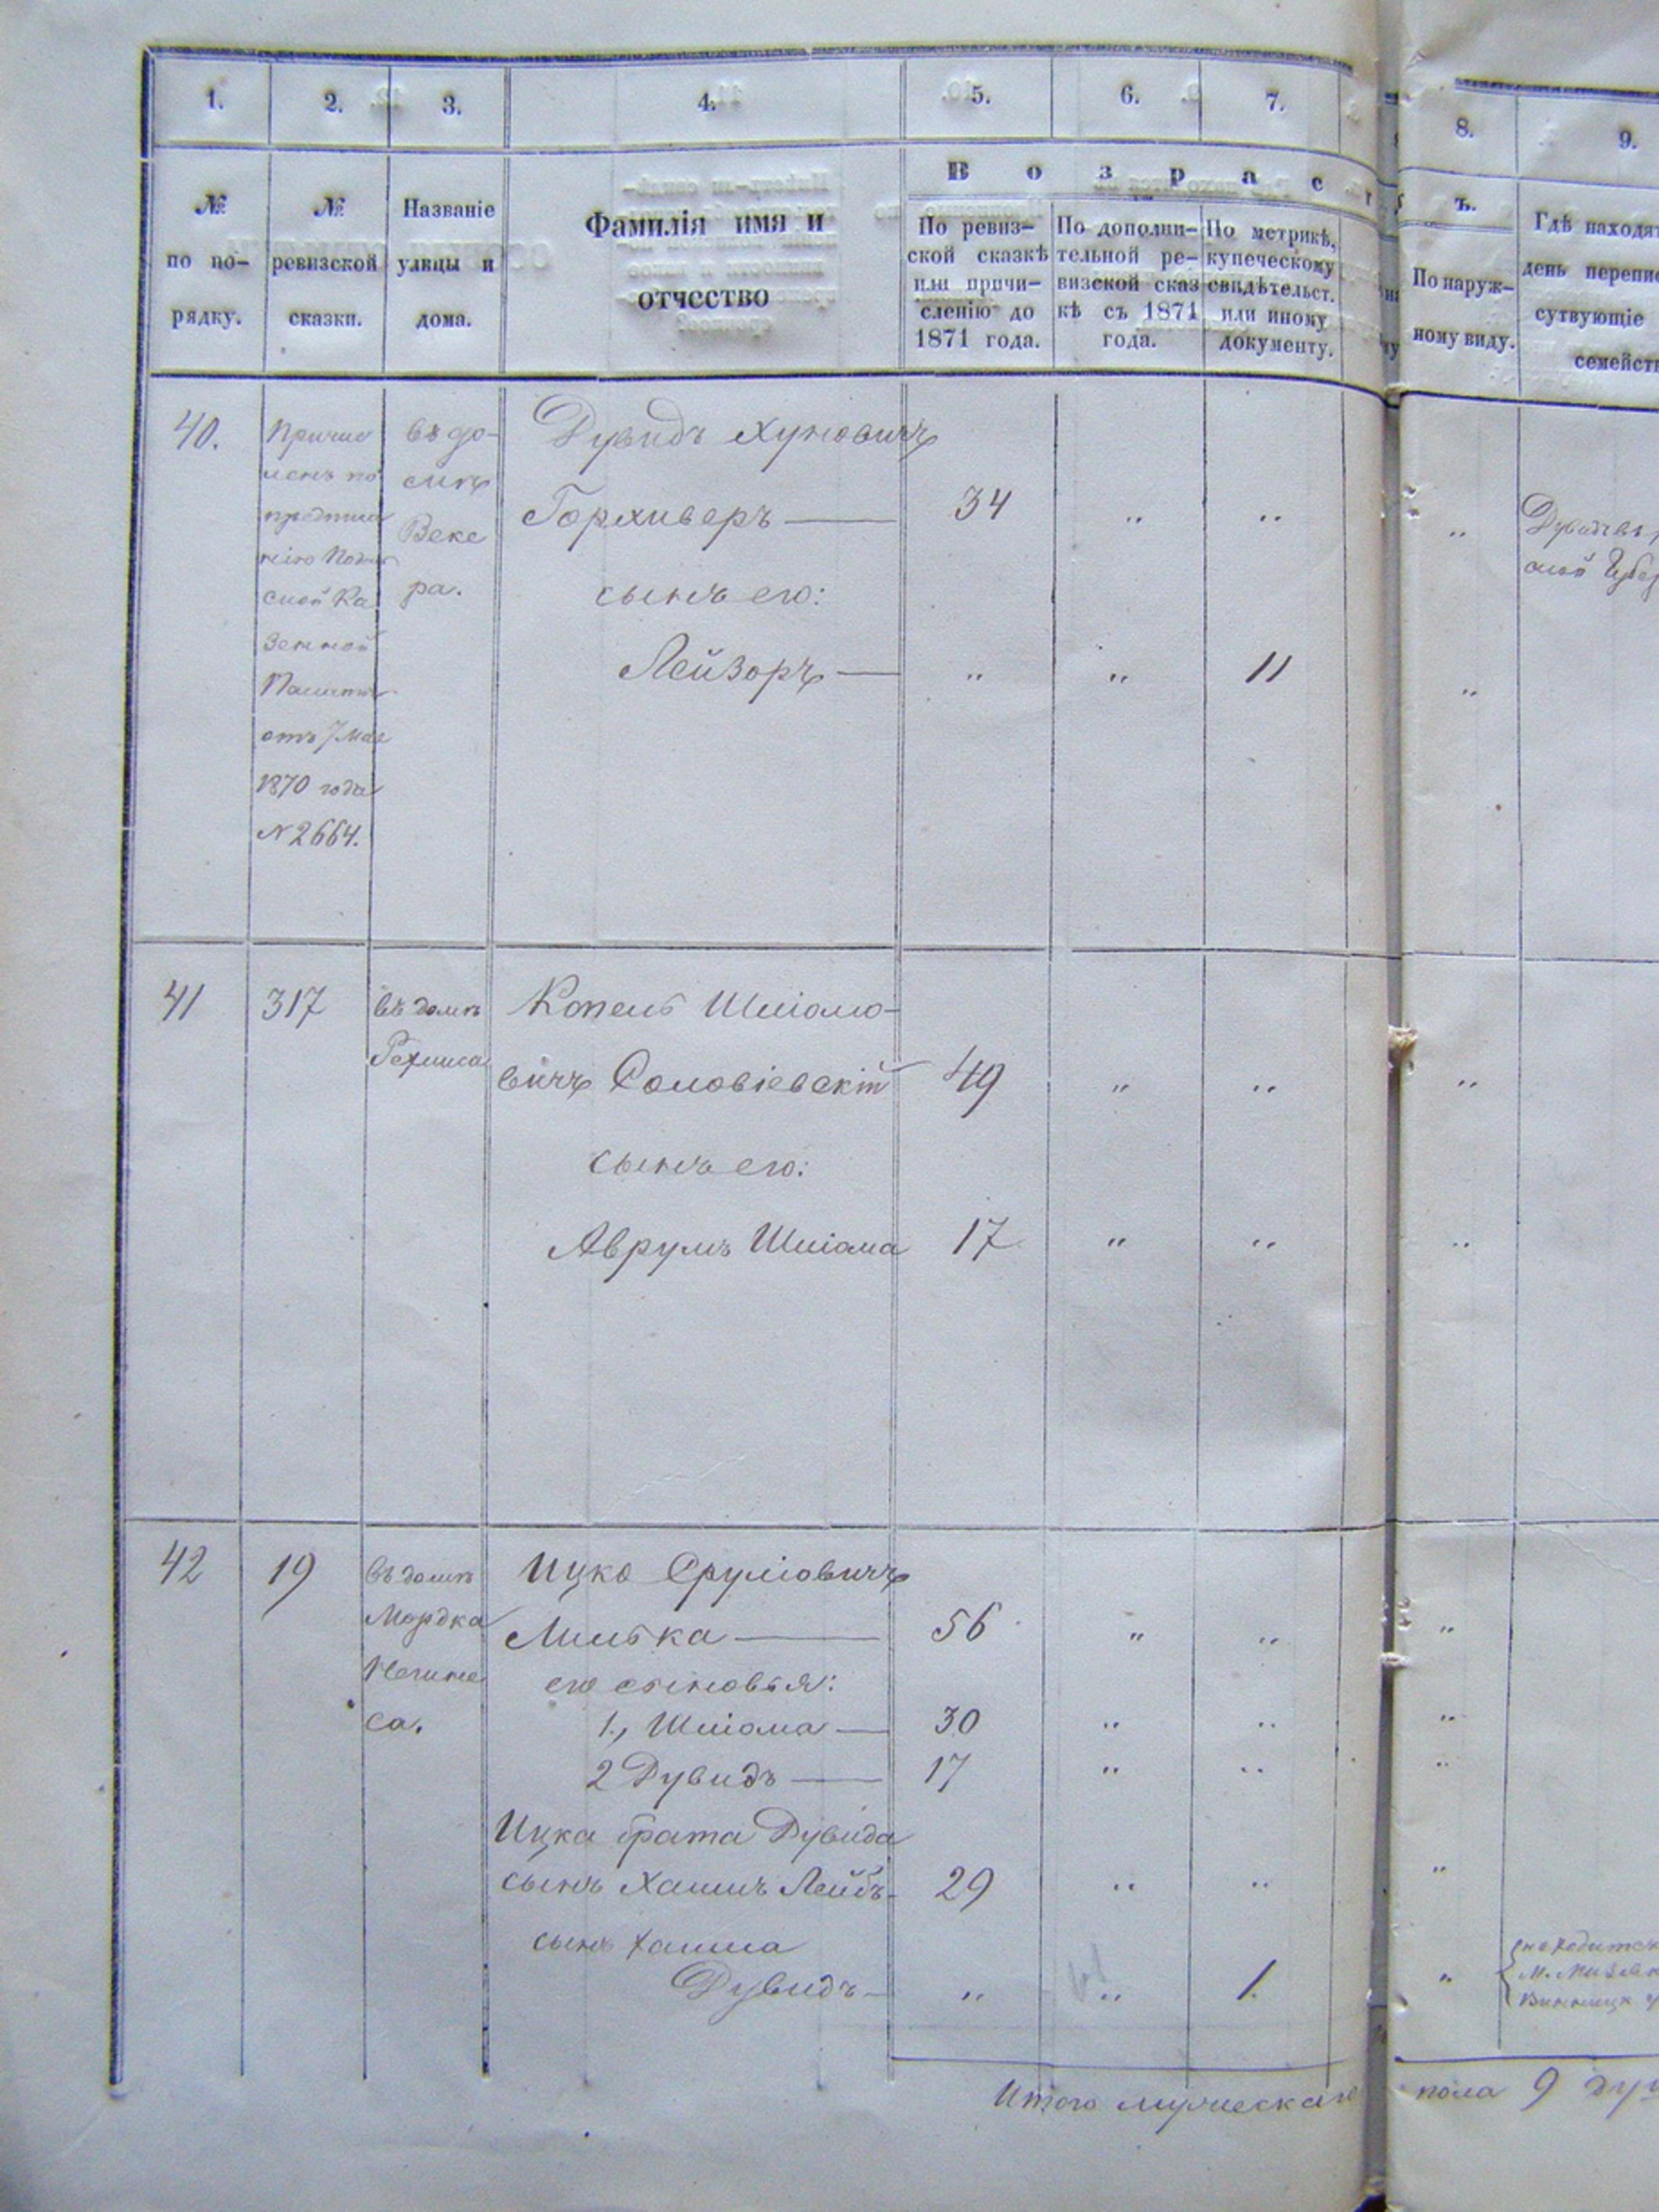 1. 2. 3. 4. 5. 6. 7. 8. 9.
В о з р а с т ъ.
№ по по- рядку.
№ ревизской сказки.
Названіе улицы и дома.
Фамилія имя и отчество
По ревиз- ской сказкѣ или причи- сленію до 1871 года.
По дополни- тельной ре- визской сказ кѣ съ 1871 года.
По метрикѣ, купеческому свидѣтельст. или иному документу.
По наруж- ному виду.
Гдѣ находят
день перепис
сутвующіе
семейст
40.
Причис
ленъ по
предписа
нію Подол
ской Ка
зенной
Палаты
отъ 7 Мая
1870 года
№ 2664.
въ до-
мѣ
Веке
ра.
Дувидъ Хуновичъ
Горхиверъ — 34 " "
сынъ его:
Лейзоръ — " " 11 "
41 317 въ домѣ
Копель Шліомо-
вичъ Соловіевскій 49 " " "
сынъ его:
Аврумъ Шліома 17 " " "
42 19 въ домѣ
Мордка
са.
Ицко Сруліовичъ
Милька — 56 " " "
его сыновья:
1., Шліома — 30 " " "
2 Дувидъ — 17 " " "
Ицка брата Дувида
сынъ Хаимъ Лейбъ- 29 " " "
сынъ Хаима
Дувидъ — " " 1. "
находится
Винницк
Итого мужескаго пола 9 душ